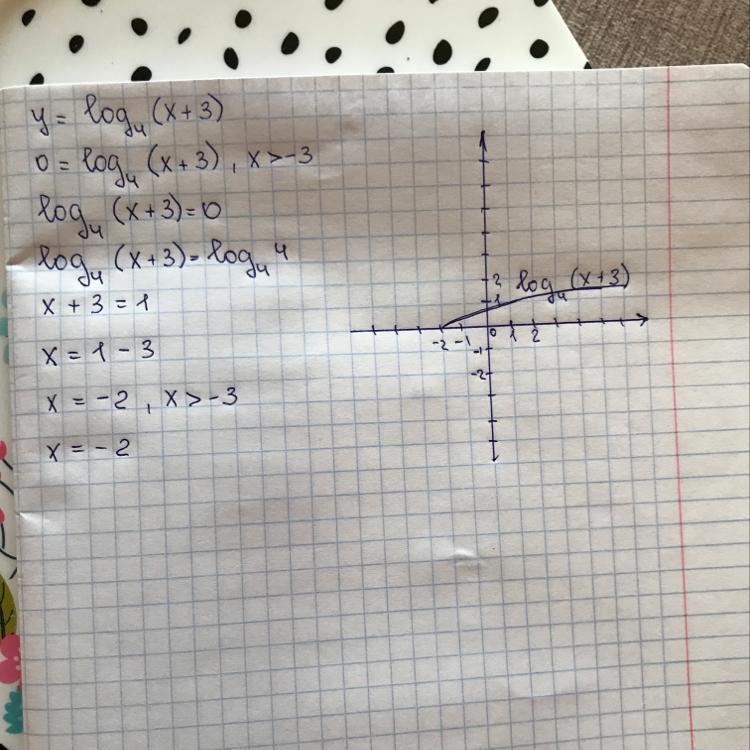 y = log₄ (x+3)
0 = log₄ (x+3) , x > -3
log₄ (x+3) = 0
log₄ (x+3) = log₄ 4
x + 3 = 1
x = 1 - 3
x = -2 , x > -3
x = -2
log₄ (x+3)
2
1
-2 -1 0 1 2
-1
-2